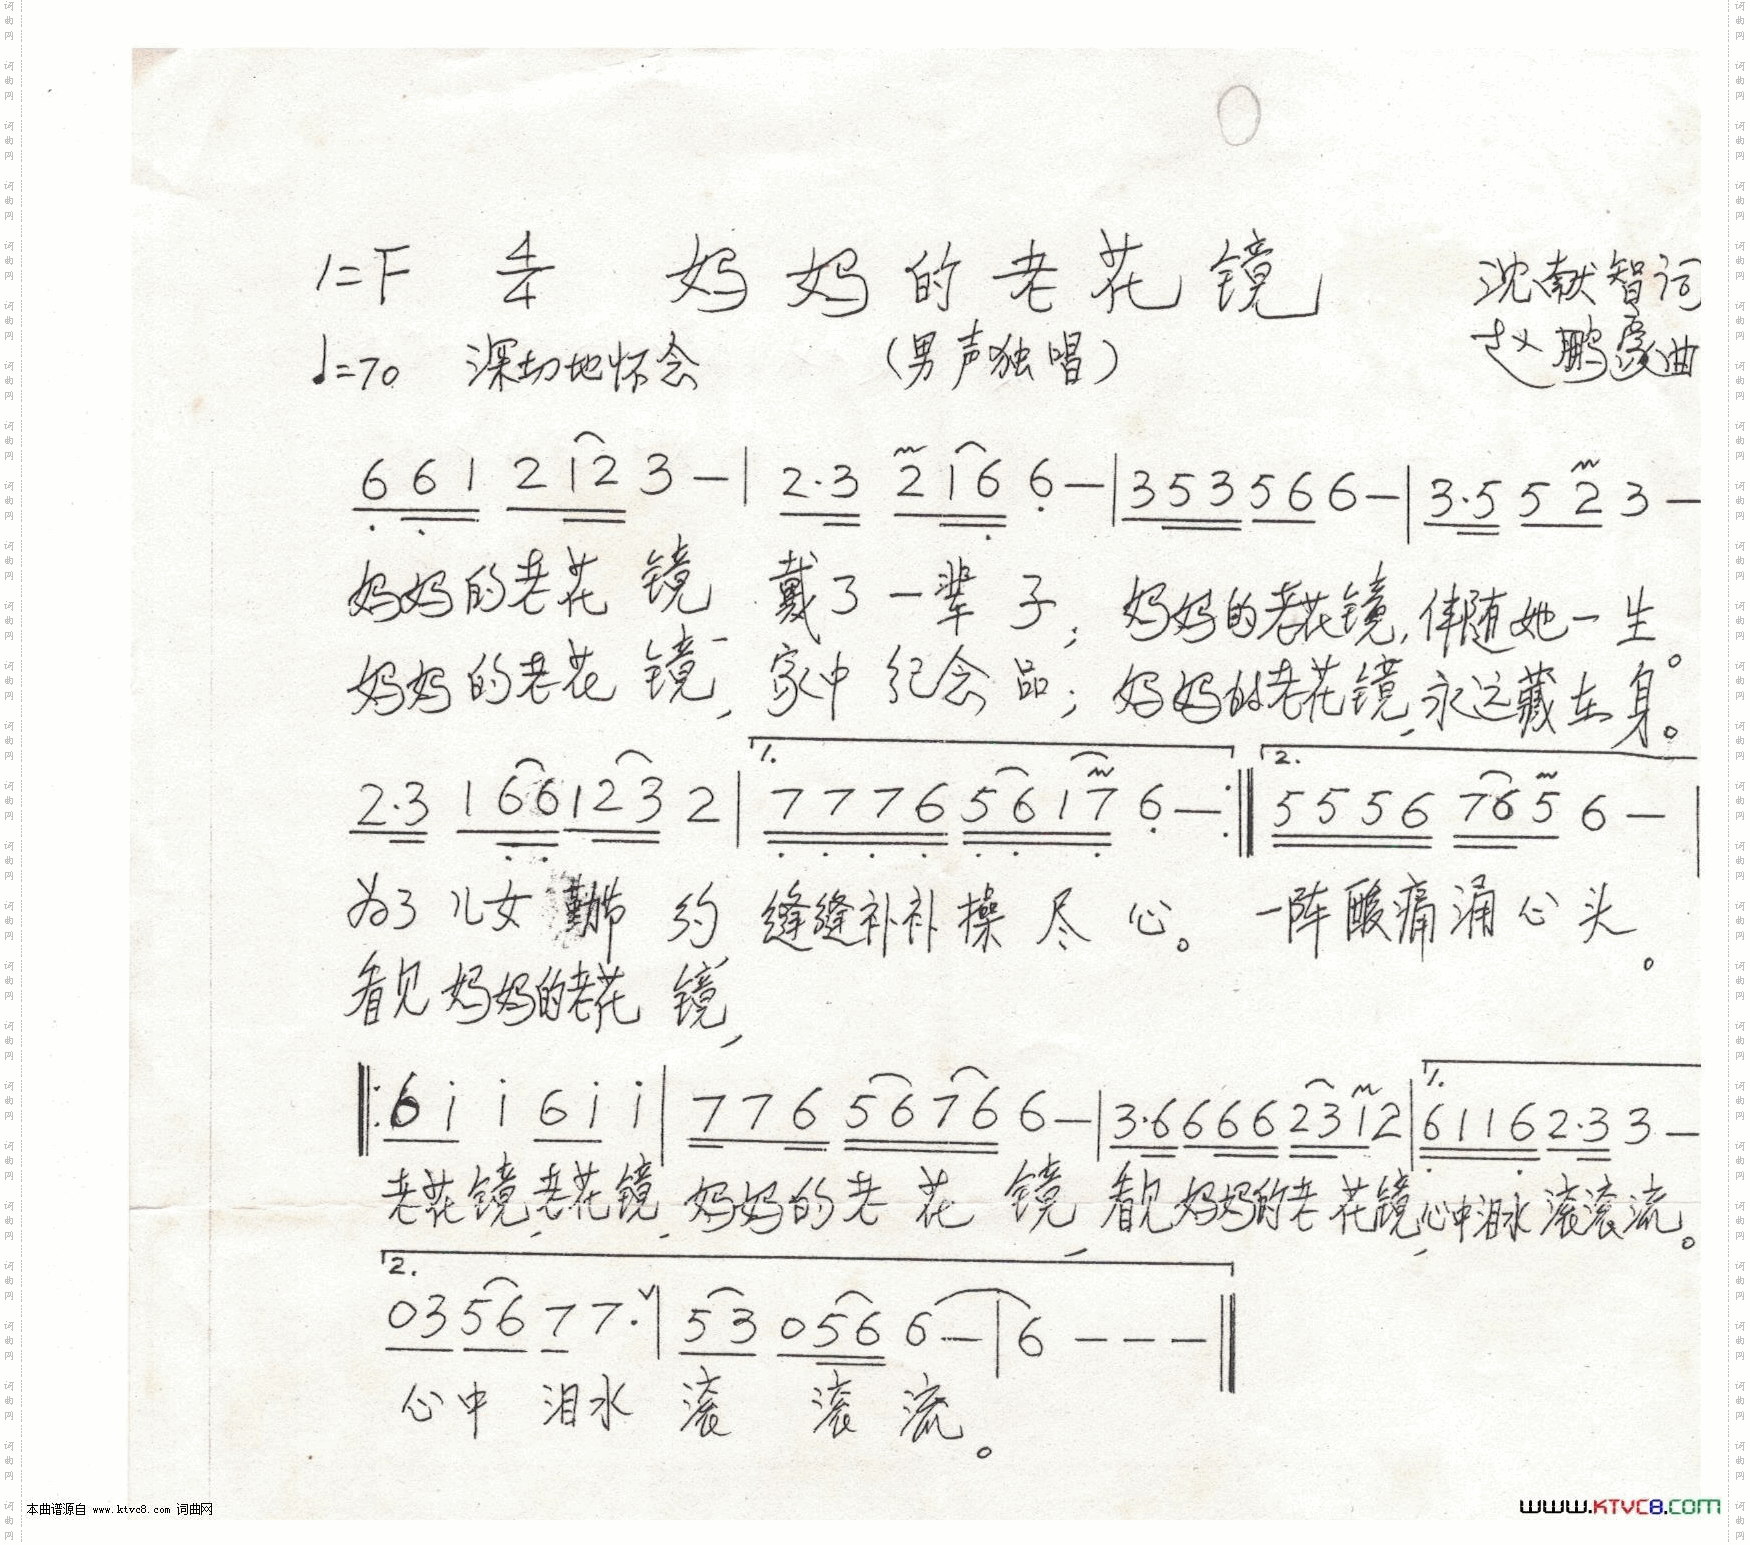 1=F 4/4 妈妈的老花镜 沈献智词
♩=70 深切地怀念 (男声独唱) 赵鹏豪曲
6 6 1 2 1 2 3 — | 2·3 2 1 6 6 — | 3 5 3 5 6 6 — | 3·5 5 2 3 —
妈妈的老花镜 戴了一辈子; 妈妈的老花镜,伴随她一生。
妈妈的老花镜, 家中纪念品; 妈妈的老花镜,永远藏在身。
1. 2.
2·3 1 6 6 1 2 3 2 | 7 7 7 6 5 6 1 7 6 — :‖ 5 5 5 6 7 6 5 6 — |
为了儿女勤节约 缝缝补补操尽心。 一阵酸痛涌心头。
看见妈妈的老花镜,
1.
‖: 6 i i 6 i i | 7 7 6 5 6 7 6 6 — | 3·6 6 6 6 2 3 1 2 | 6 1 1 6 2·3 3 —
老花镜,老花镜, 妈妈的老花镜, 看见妈妈的老花镜,心中泪水滚滚流。
2.
0 3 5 6 7 7· ∨ | 5 3 0 5 6 6 — | 6 — — — ‖
心中泪水滚滚流。
本曲谱源自 www.ktvc8.com 词曲网
www.KTVC8.com